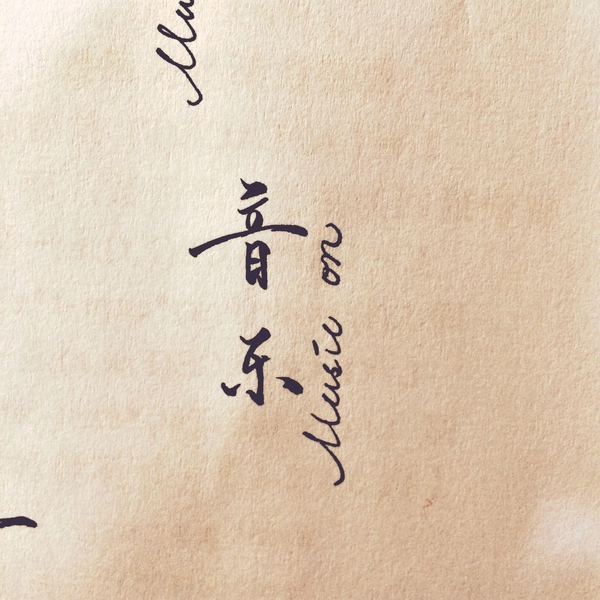 音乐
Music on
Mu